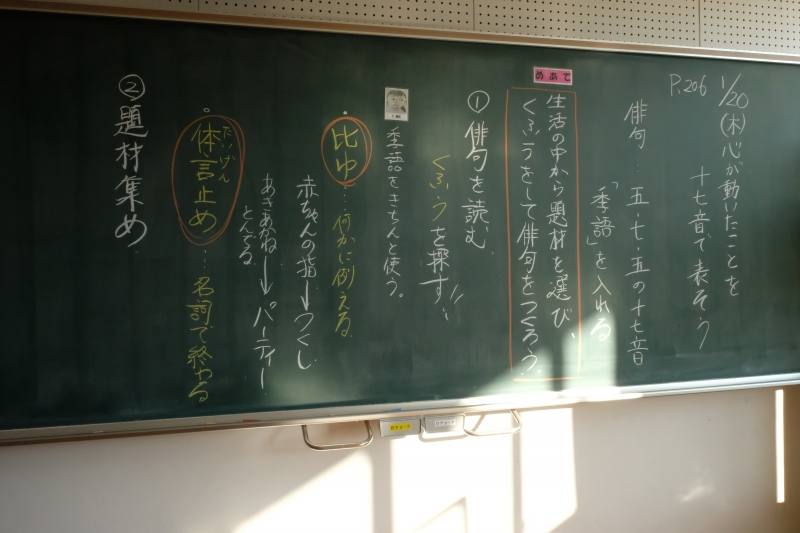 1/20(木)心が動いたことを
十七音で表そう
P.206
俳句…五・七・五の十七音
「季語」を入れる
めあて
生活の中から題材を選び、
くふうをして俳句をつくろう。
①俳句を読む
くふうを探す!!
季語をきちんと使う。
比ゆ…何かに例える
赤ちゃんの指→つくし
あきあかね→パーティー
とんでる
体言止め…名詞で終わる
たいげん
②題材集め